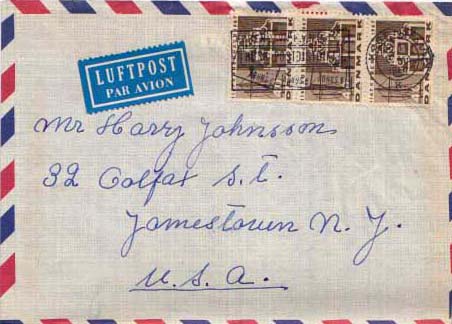 LUFTPOST
PAR AVION
DANMARK
DANMARK
DANMARK
Mr Harry Johnsson
32 Colfax S.t.
Jamestown N.Y.
U.S.A.